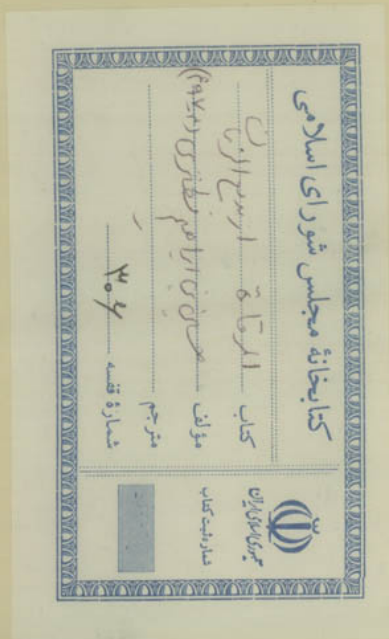 کتابخانهٔ مجلس شورای اسلامی
کتاب المرقاة
مؤلف حسین بن ابراهیم نطنزی
مترجم
شمارهٔ قفسه ۳۰۶
جمهوری اسلامی ایران
شماره ثبت کتاب